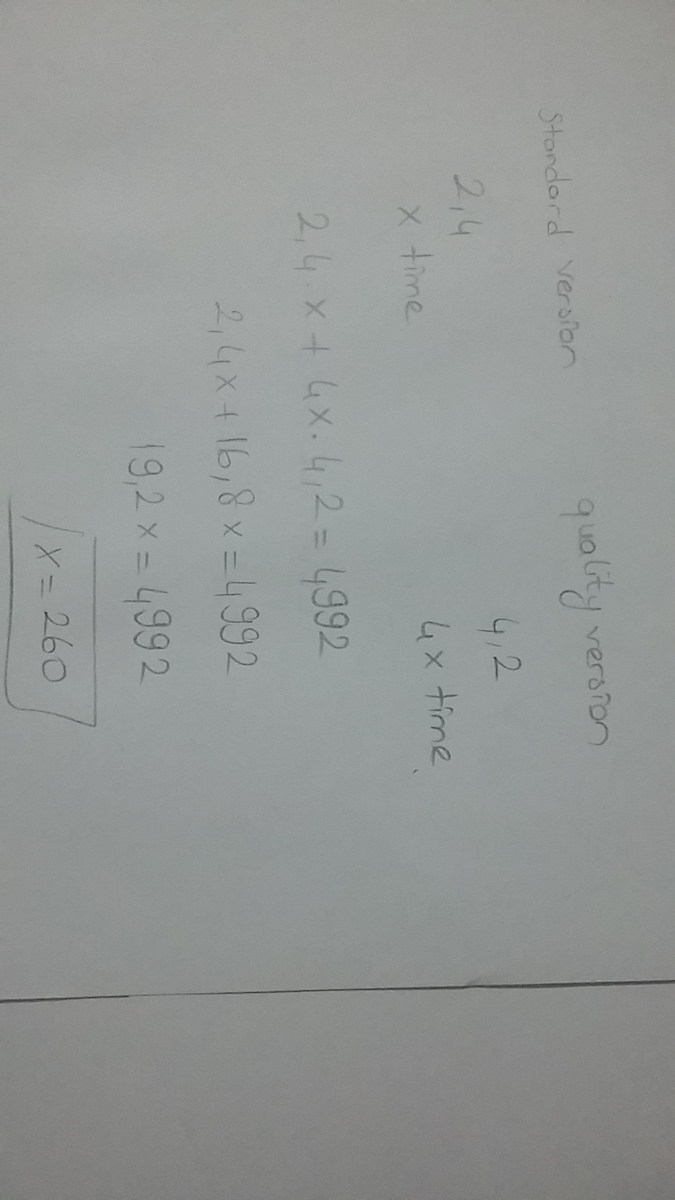 Standard version quality version
2,4 4,2
x time 4x time
2,4.x + 4x.4,2 = 4992
2,4x + 16,8x = 4992
19,2x = 4992
x = 260